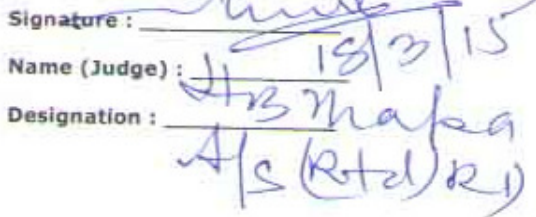 Signature :
18/3/15
Name (Judge) : HB Thapa
Designation :
A/S (Rtd)